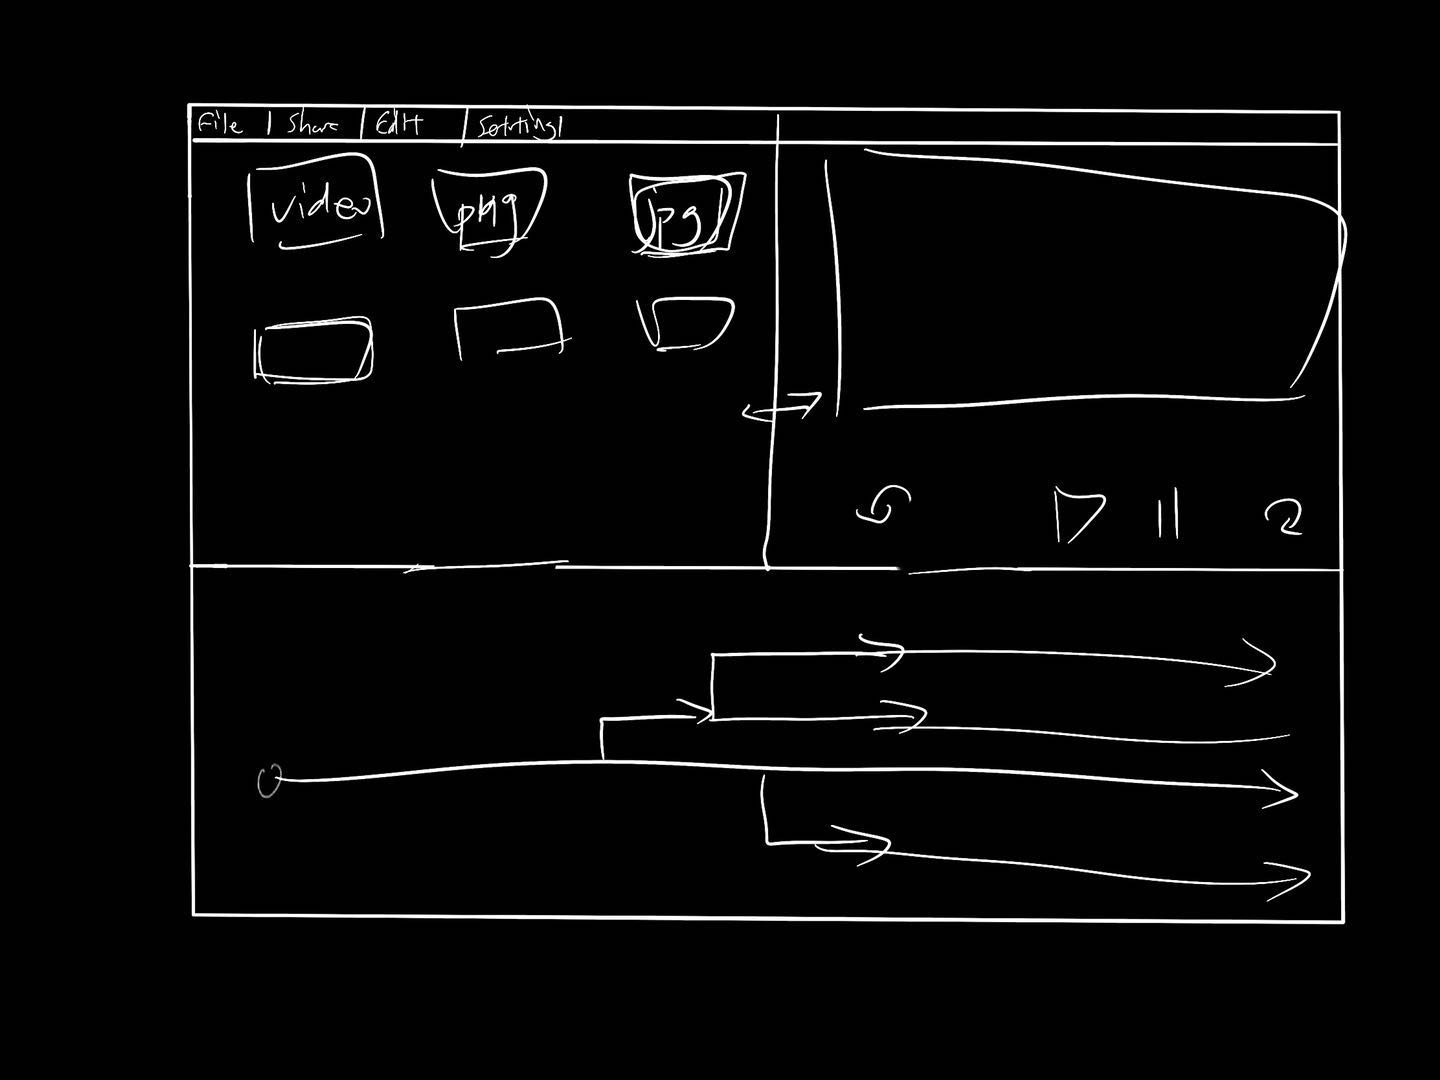 File | Share | Edit | Setting|
video png jpg